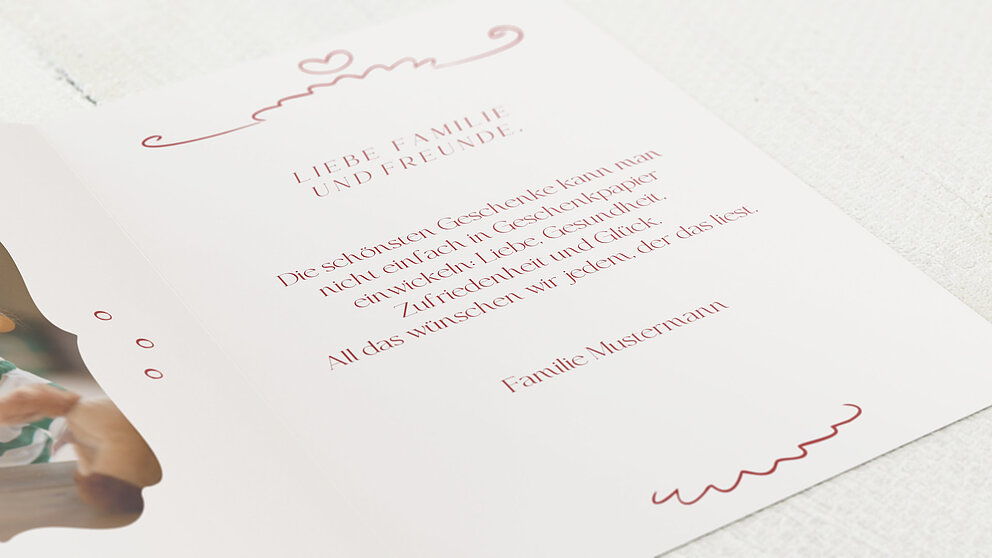 LIEBE FAMILIE
UND FREUNDE,
Die schönsten Geschenke kann man
nicht einfach in Geschenkpapier
einwickeln: Liebe, Gesundheit,
Zufriedenheit und Glück.
All das wünschen wir jedem, der das liest.
Familie Mustermann